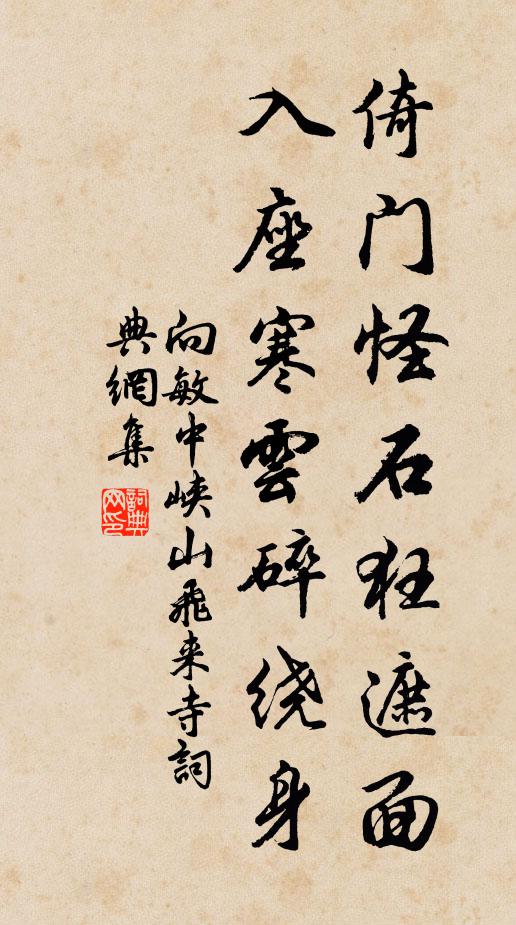 倚门怪石狂遮面
入座寒雲碎绕身
向敏中峡山飛来寺詞
典網集
詞典网印